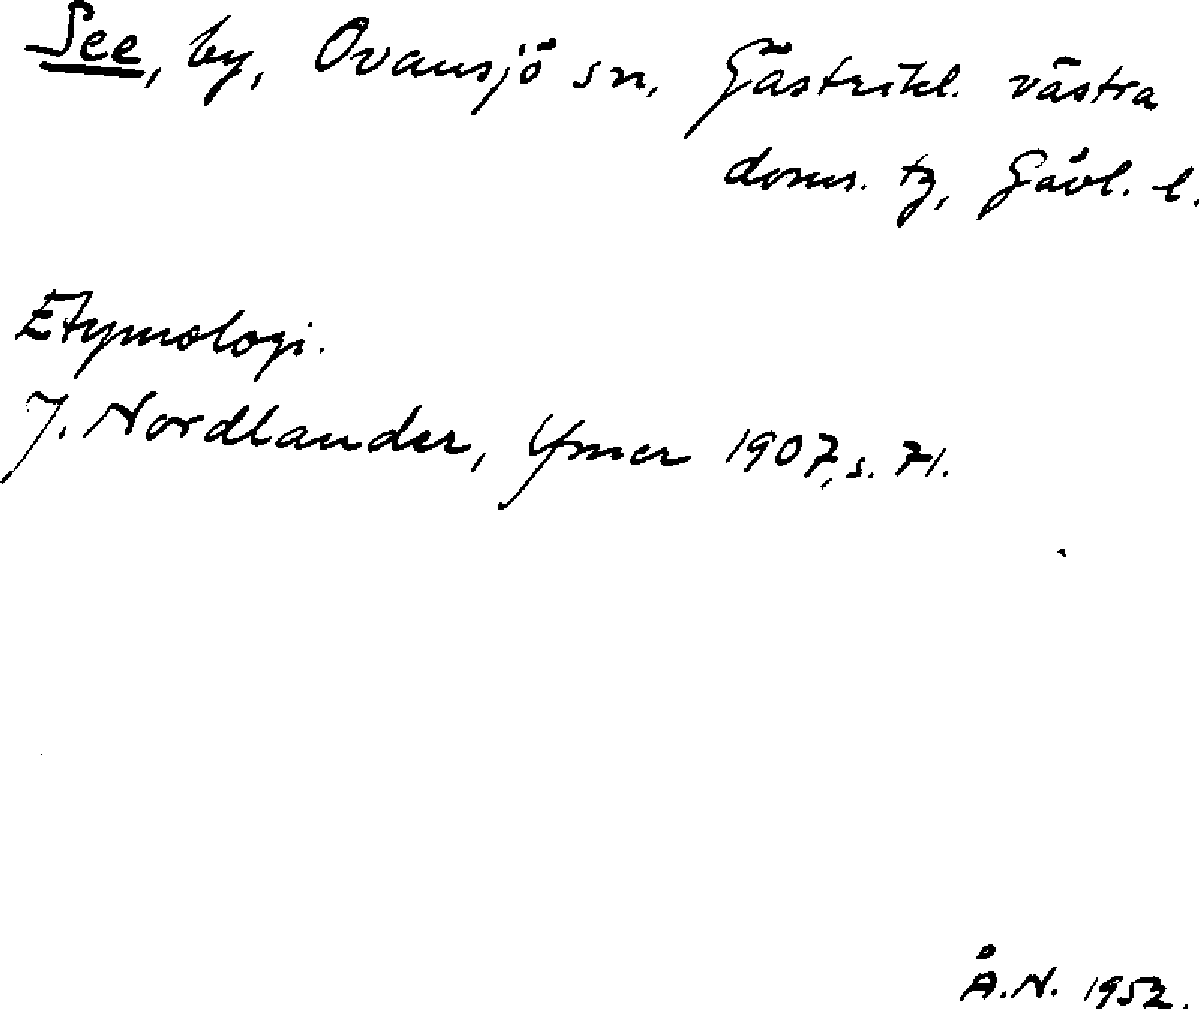 See, by, Ovansjö sn, Gästrikl. västra
doms. tg, Gävl. l.
Etymologi.
J. Nordlander, Ymer 1907, s. 71.
Å.N. 1952.